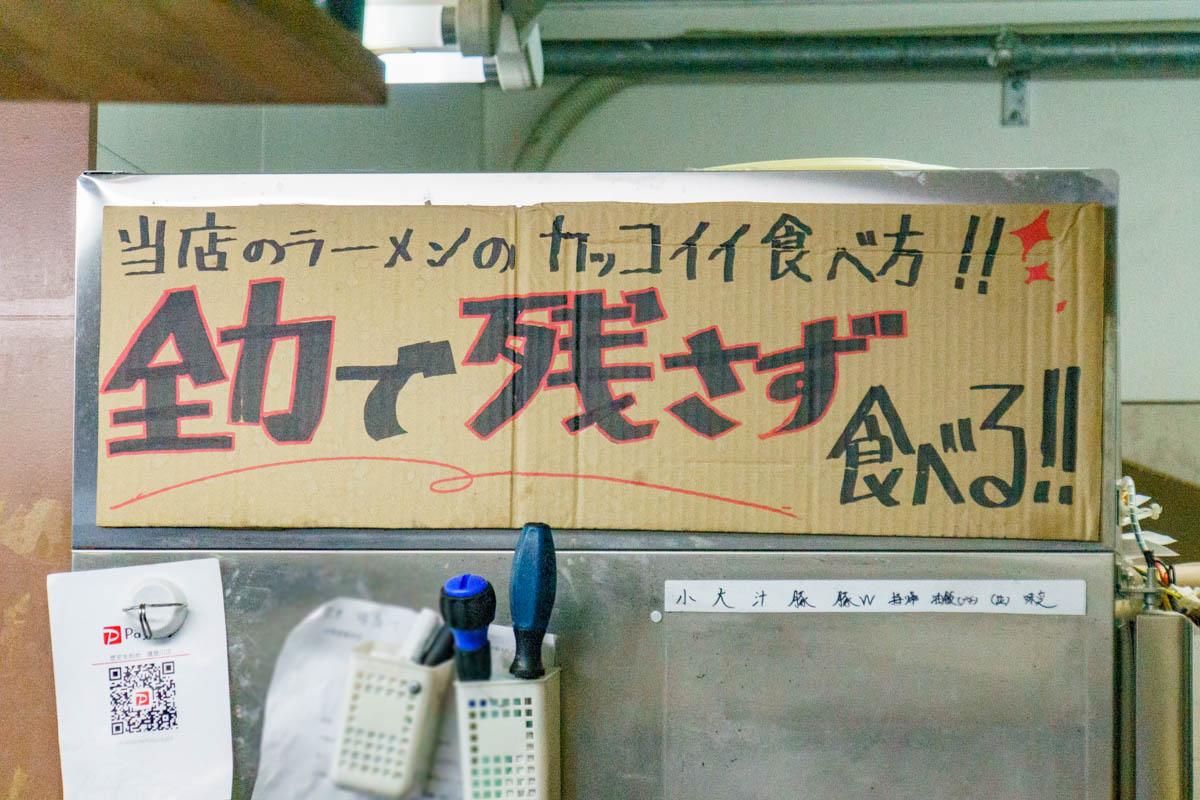 当店のラーメンの カッコイイ食べ方!!
全力で残さず
食べる!!
小 大 汁 豚 豚W